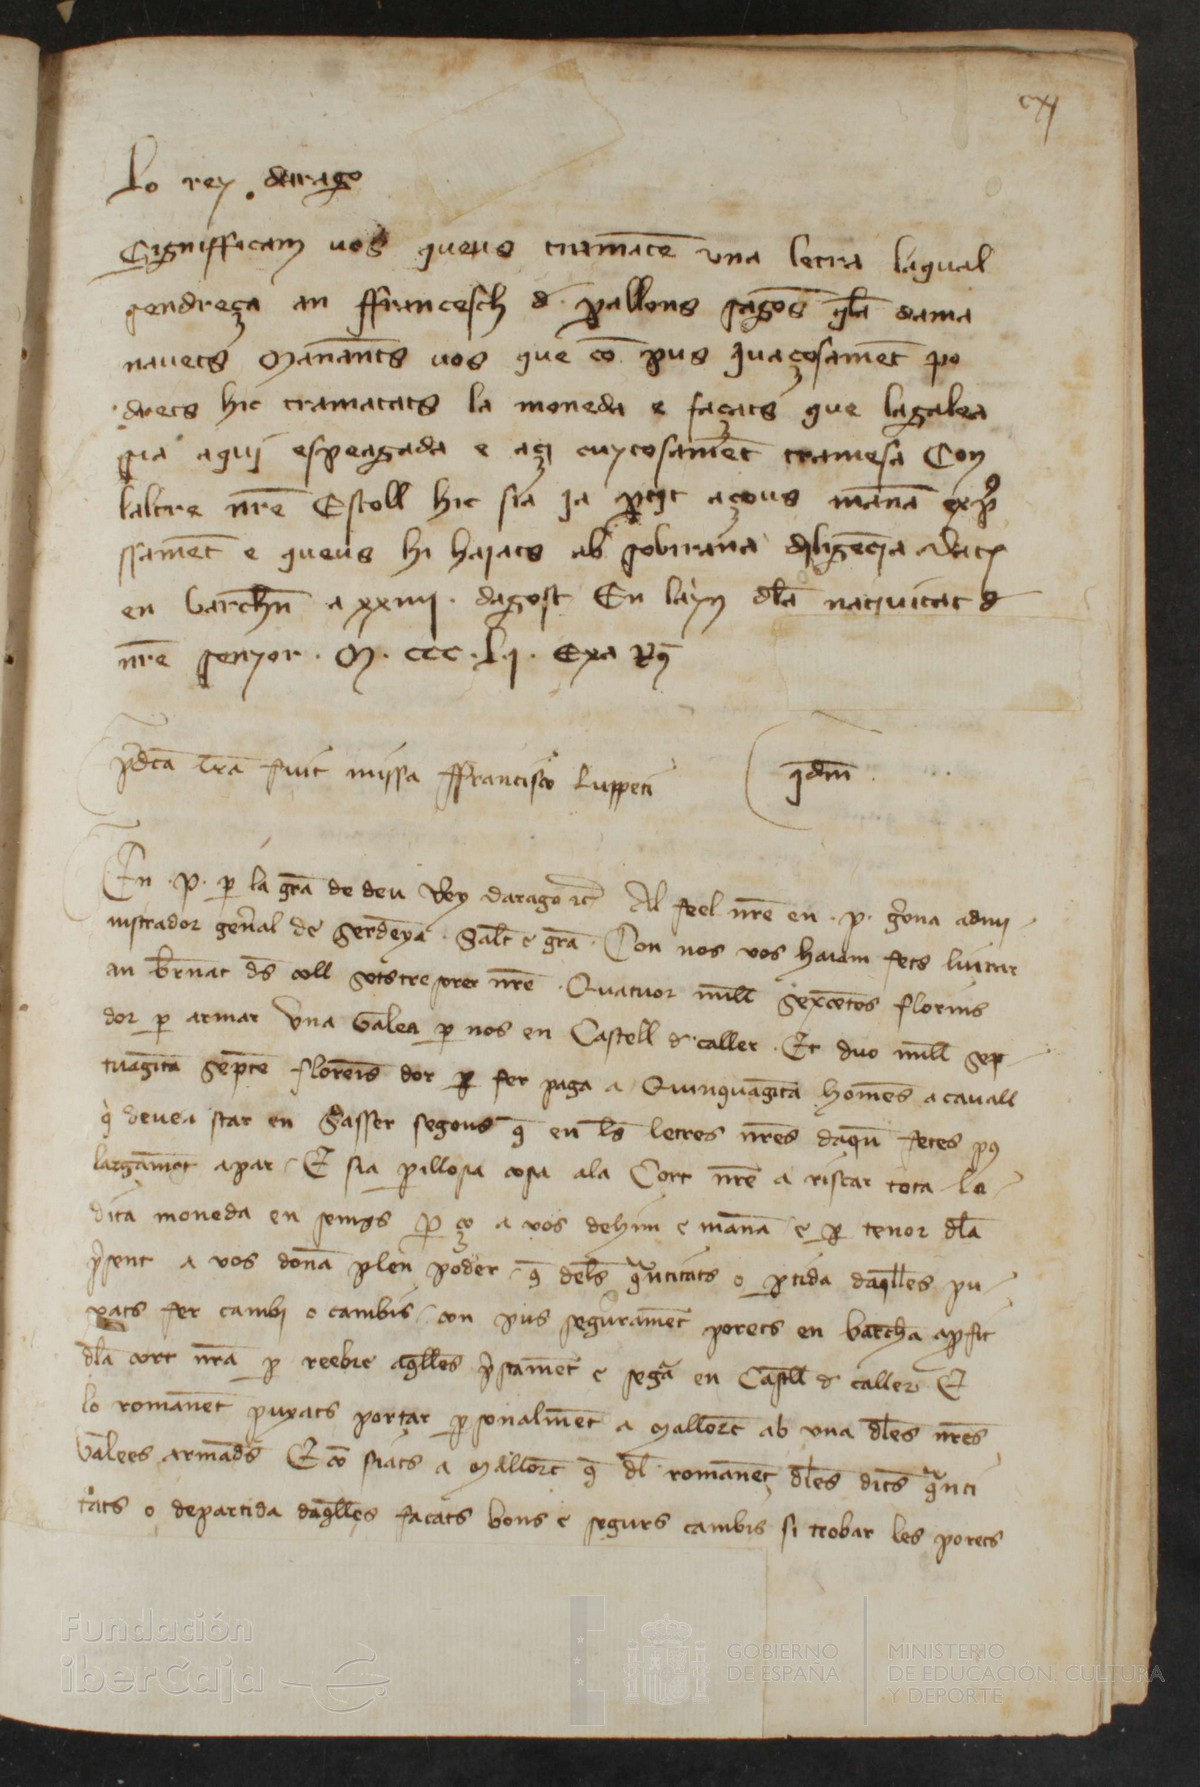 cxj
Lo rey darago
Signifficam vos queus tramatē una letra laqual
sendreça an ffrancesch d. pallons sagōs q̄la dama
navets Manants vos que cō pus yvaçosamēt po
drets hic tramatats la moneda e façats que lagalea
sia aquj espeagada e açj cuytosamēt tramesa Con
laltre nrē Estoll hic sia ja p̄tit açous manā exp̄
ssamēt e queus hi hajats ab sobirana diligēcia Datꝫ
en barchn̄ a xxiiij. dagost En layn dl̄a nativitat d
nrē senyor. M. ccc. L.j. Exa Rꝫ
p̄dcā lrā fuit missa ffrancisco luppeti
jdm̄
En .P. p̄ la grā de deu Rey darago ꝛc̄ Al feel nrē en .p. gͥona admi
nistrador genͣal de serdēya. Salt̄ e grā. Con nos vos haiam fets liurar
an brn̄at dˢ coll sotstresorer nrē. Quatuor mill̄ sexcētos florins
dor p̄ armar una Galea p̄ nos en Castell d caller. Et duo mill̄ sep
tuagīta septe florēs dor p̄ fer paga a Quinquagīta homēs a cavall
q̄ devēn star en Sasser segons q̄ en lˢ letres nrēs daquē fetes pꝰ
largamēt apar. E sia p̄illosa cosa ala Cort nrē a riscar tota la
dita moneda en semps p̄ ço a vos dehim e manā e p̄ tenor dl̄a
p̄sent a vos donā plen poder q̄ dels q̄ntitats o p̄tida daq̄lles pu
xats fer cambi o cambis con pus segurament porets en barchā a p̄fit
dl̄a cort nrā p̄ reebre aq̄lles p̄stamēt e segͣ en Castell d caller E
lo romanēt puxats portar p̄sonalmēt a Mallorc̄ ab una dl̄es nrēs
Galees armades E cō siats a Mallorc̄ q̄ dl̄ romanēt dl̄es dites q̄nti
tats o departida daq̄lles facats bons e segurs cambis si trobar les porets
Fundación
iberCaja
GOBIERNO
DE ESPAÑA
MINISTERIO
DE EDUCACIÓN, CULTURA
Y DEPORTE